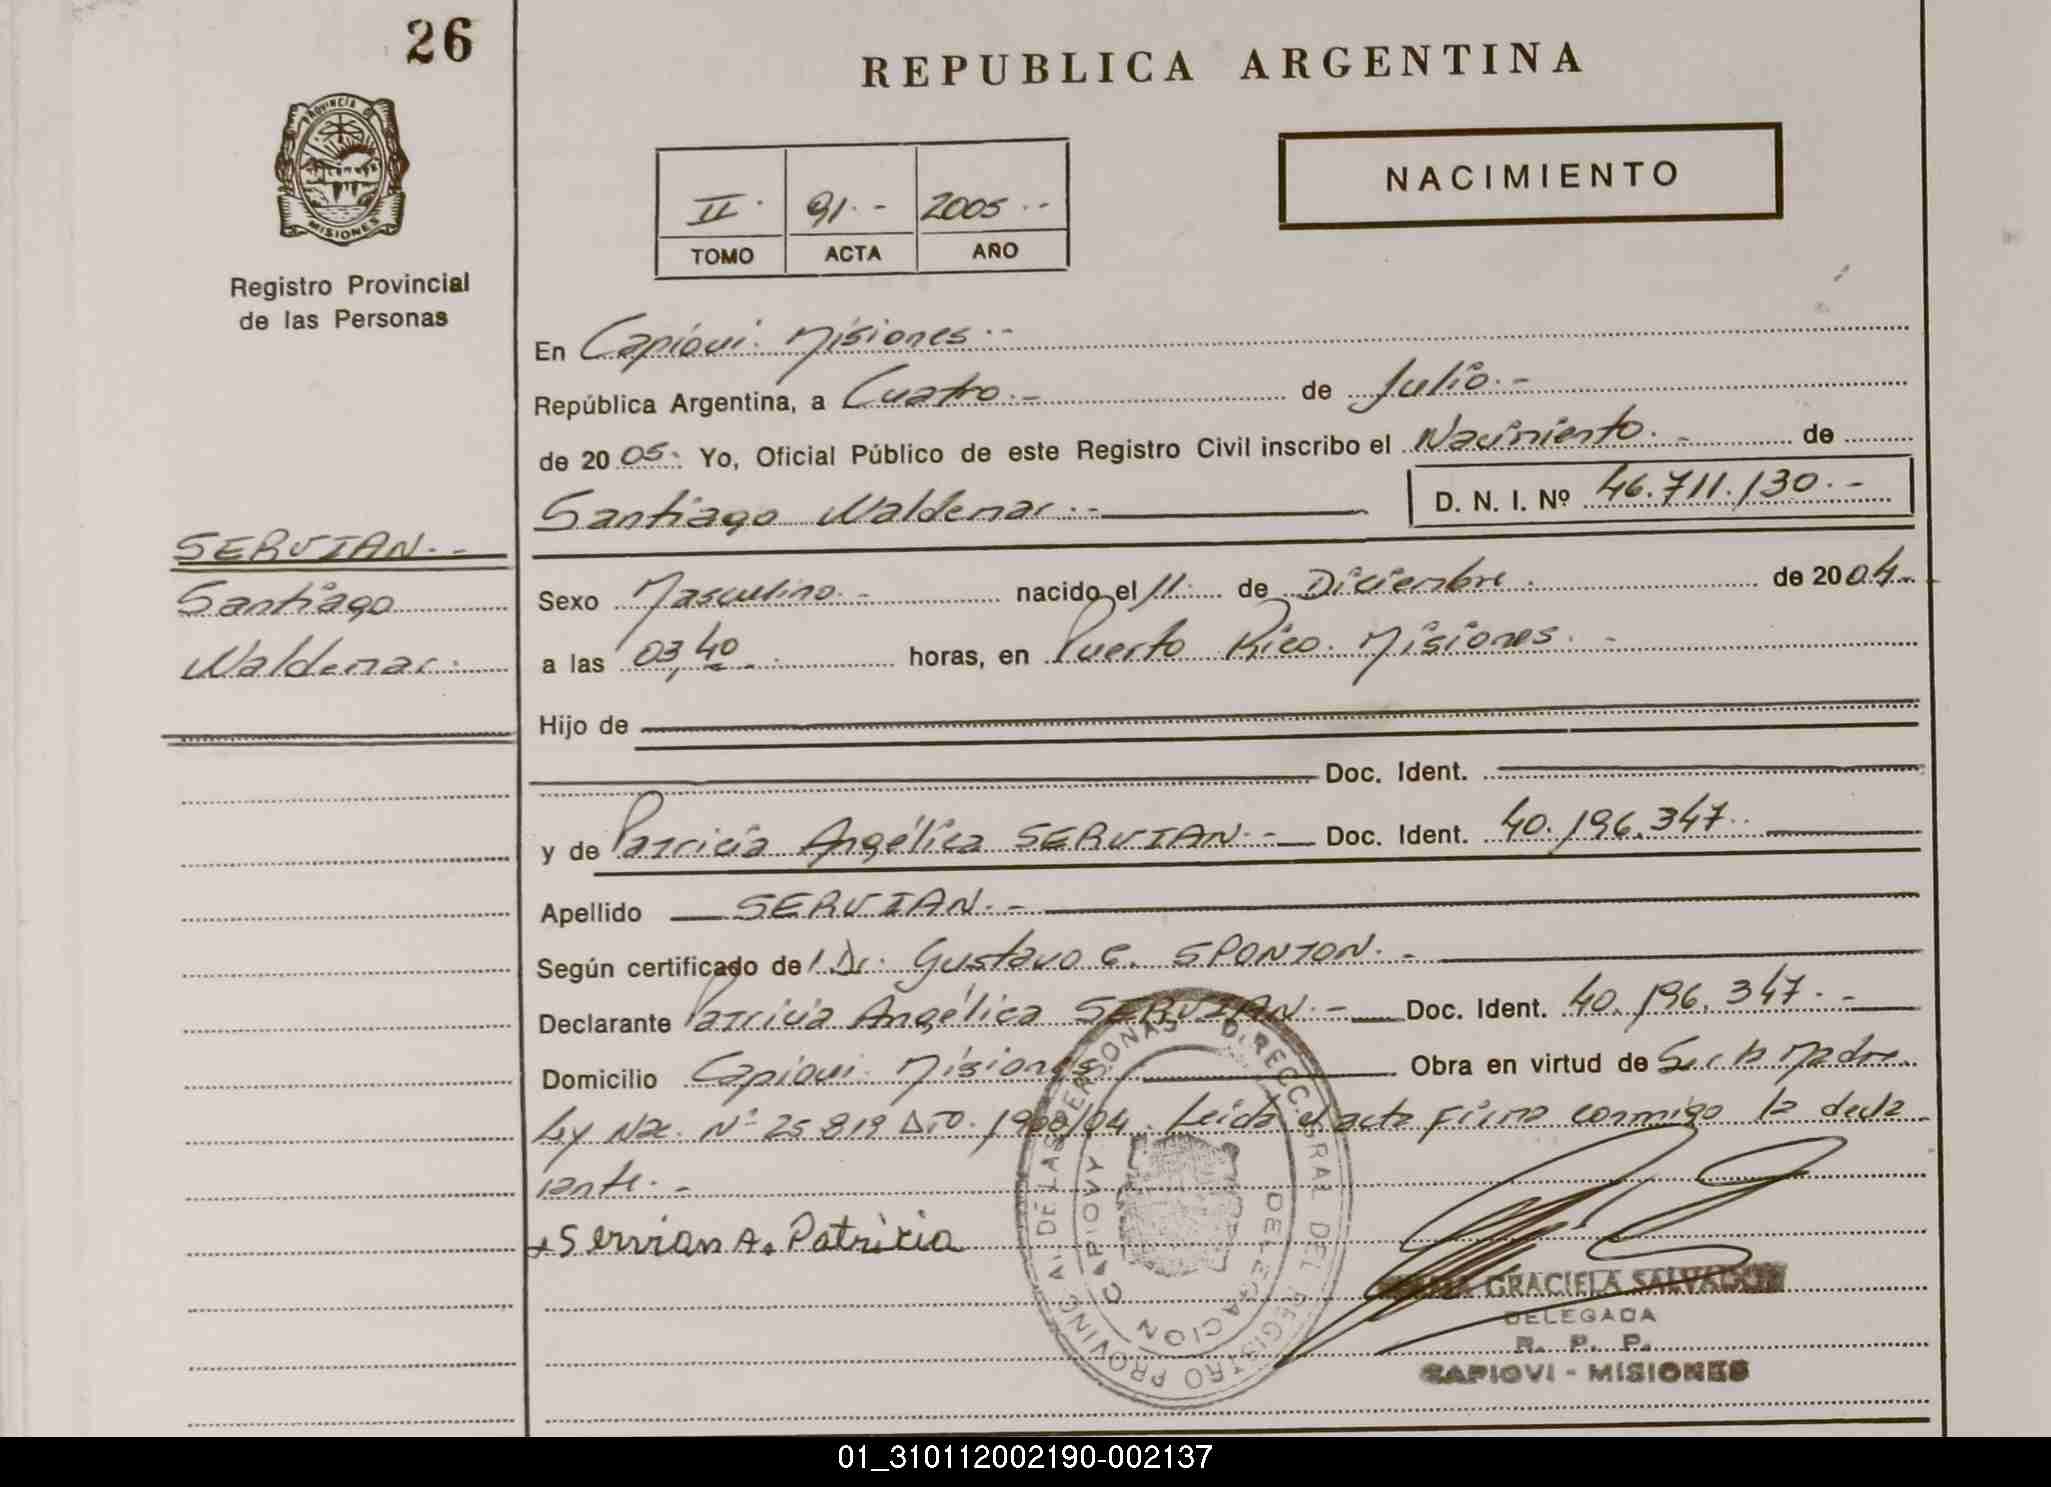 26
REPUBLICA ARGENTINA
PROVINCIA DE
MISIONES
Registro Provincial
de las Personas
NACIMIENTO
II. 91.- 2005.-
TOMO ACTA AÑO
En Capioví. Misiones.-
República Argentina, a Cuatro.- de Julio.-
de 2005. Yo, Oficial Público de este Registro Civil inscribo el Nacimiento.- de
Santiago Waldemar.- D. N. I. Nº 46.711.130.-
SERVIAN.-
Santiago
Waldemar.
Sexo Masculino.- nacido el 11 de Diciembre. de 2004.-
a las 03,40 horas, en Puerto Rico. Misiones.-
Hijo de
Doc. Ident.
y de Patricia Angélica SERVIAN.- Doc. Ident. 40.196.347.
Apellido SERVIAN.-
Según certificado del Dr. Gustavo C. SPONTON.-
Declarante Patricia Angélica SERVIAN.- Doc. Ident. 40.196.347.-
Domicilio Capioví. Misiones Obra en virtud de Ser la Madre
Ley Nac. Nº 25.819 DTO. 1900/04. Leida el acta firma conmigo la decla
rante.-
Servian A. Patricia
DIRECC. GRAL DEL REGISTRO PROVINCIAL DE LAS PERSONAS
DELEGACION CAPIOVY
GRACIELA SALVADOR
DELEGADA
R. P. P.
CAPIOVI - MISIONES
01_310112002190-002137